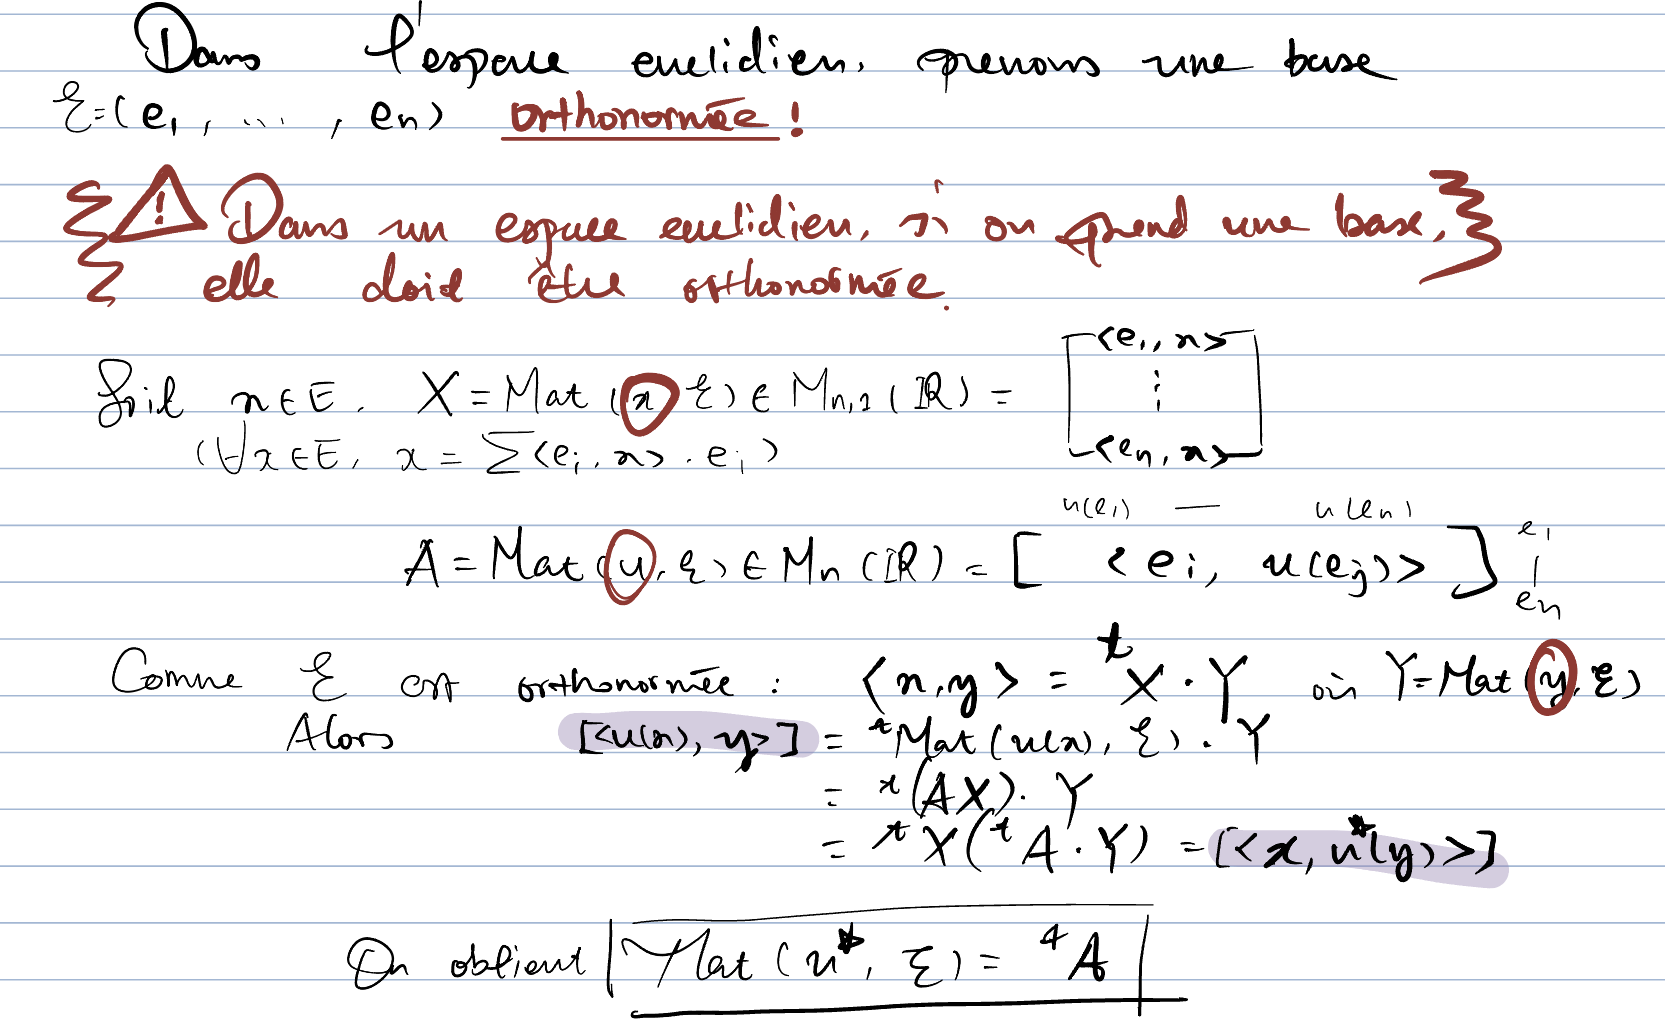 Dans l'espace euclidien, prenons une base
ℰ=(e₁, ..., en) orthonormée !
⚠ Dans un espace euclidien, si on prend une base,
elle doit être orthonormée.
Soit x∈E. X = Mat(x, ℰ) ∈ Mn,1(ℝ) = [<e₁, x> ⋮ <en, x>]
(∀x∈E, x = Σ<ei, x>.ei)
u(e₁) — u(en)
A = Mat(u, ℰ) ∈ Mn(ℝ) = [<ei, u(ej)>] e₁ | en
Comme ℰ est orthonormée : <x,y> = ᵗX·Y où Y=Mat(y, ℰ)
Alors [<u(x), y>] = ᵗMat(u(x), ℰ)·Y
= ᵗ(AX)·Y
= ᵗX(ᵗA·Y) = [<x, u*(y)>]
On obtient Mat(u*, ℰ) = ᵗA